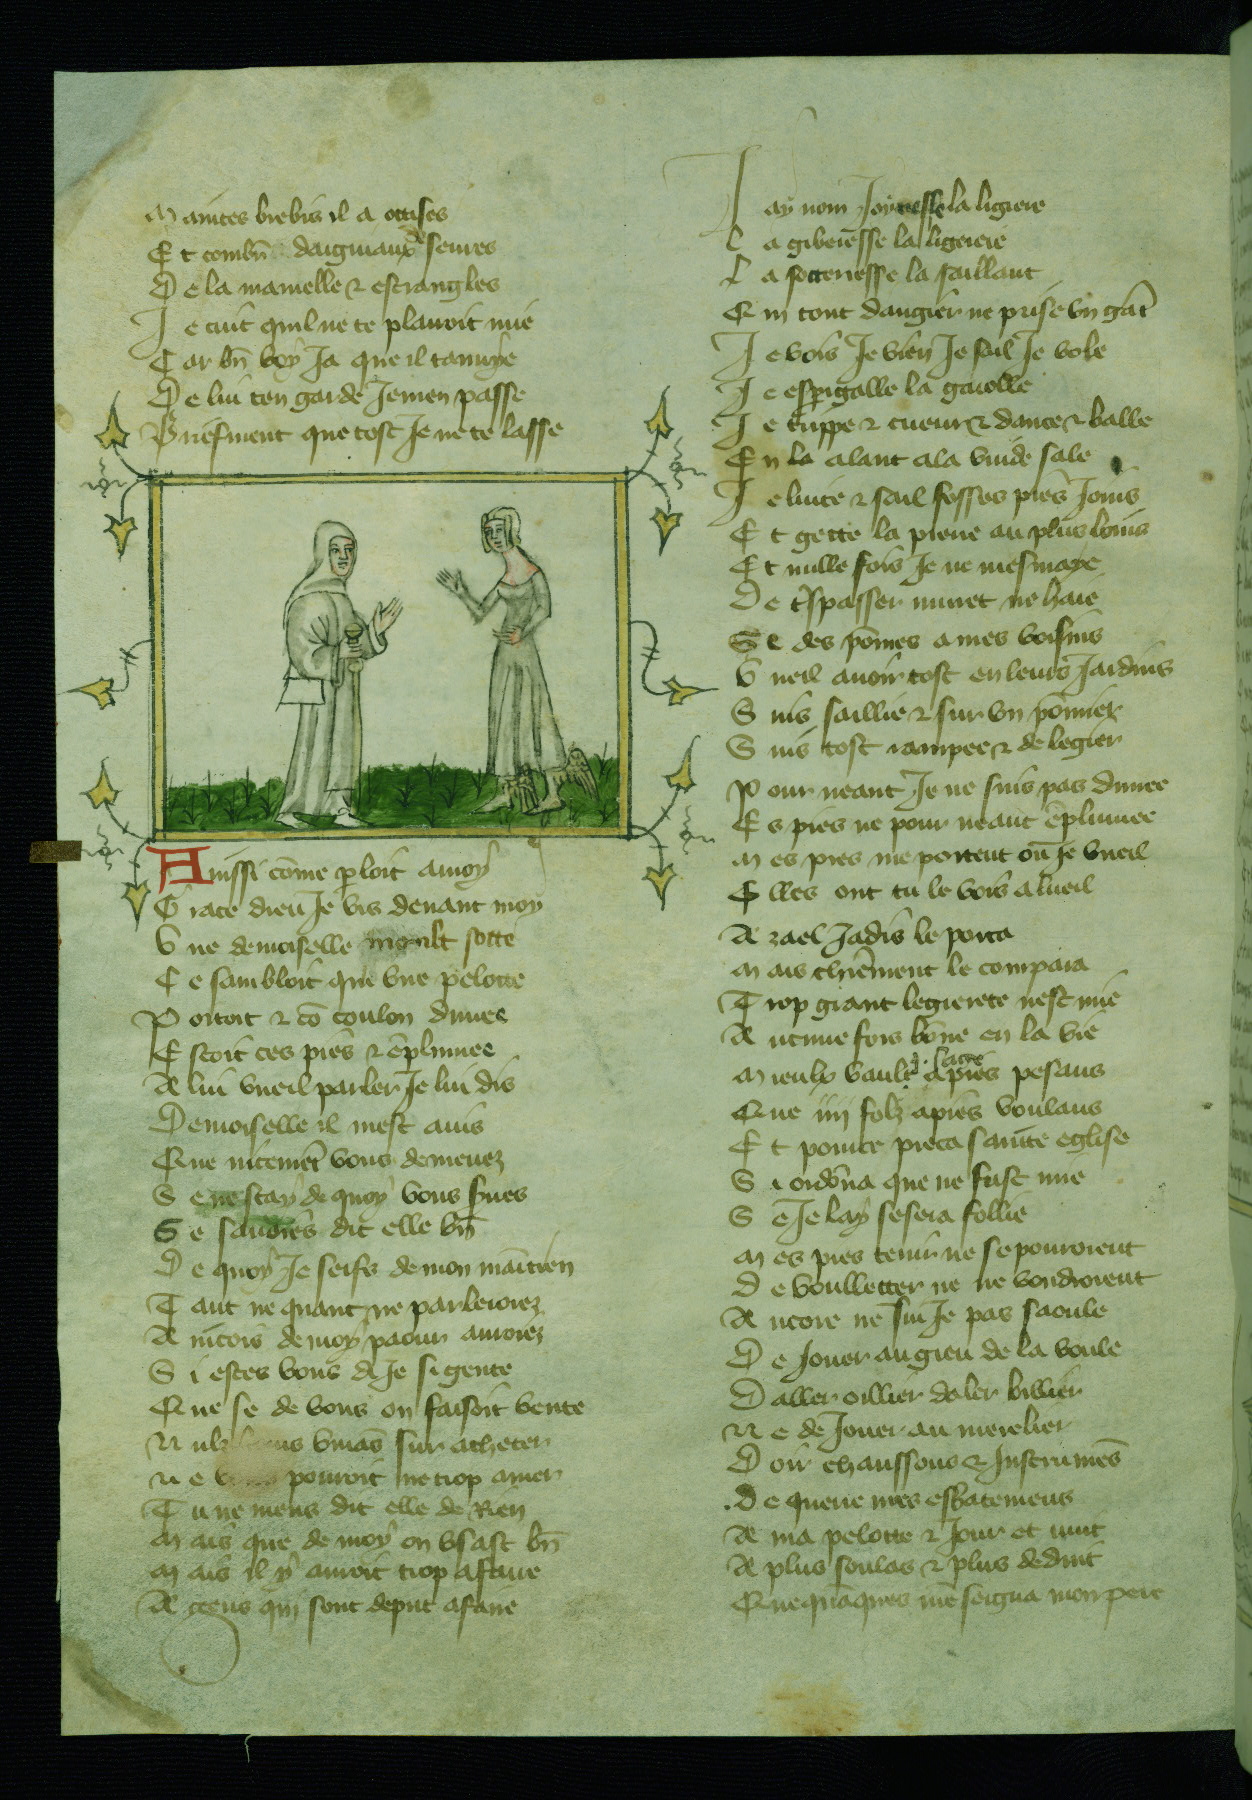 Maintes brebis il a occises
Et combn̄ daigniaux de seures
De la mamelle ⁊ estrangles
Je cuit quil ne te plairoit mie
Car bn̄ voy Ja que il tanuye
De lui ten garde Jemen passe
Briefment que tost Je ne te lasse
Ainssi cōme ploit a moy
Grace dieu Je vis deuant moy
Une demoiselle moult sotte
Ce sambloit que vne pelotte
Portoit ⁊ cō coulon duuee
Estoit ces pies ⁊ ēplumee
A lui vueil parler Je lui dis
Demoiselle il mest auis
Que nicemēt vous demenez
Se ne scay de quoy vous senes
Se sauoies dit elle bn̄
De quoy Je seifs de mon māitien
Tant ne quant ne parleroiez
Aincois de moy paour auroiez
Si estes vous dis Je si gente
Que se de vous on faisoit vente
Nulz vmas sur acheter
Ne pouroit ne trop amer
Tu ne mens dit elle de Rien
Mais que de moy on vsast bn̄
Mais il y auroit trop afaire
A ceeus qui sont deput afaire
Jay nom Joynesse la ligiere
La giberesse la ligeriere
La sotteresse la saillant
Qui tout dangier ne prise vn gāt
Je vois Je vien Je sail Je vole
Je espigalle la gaiolle
Je trippe ⁊ cueur ⁊ dance ⁊ balle
En la alant ala vuide sale
Je luite ⁊ sail fosses pies Joins
Et gette la piere au plus loins
Et nulle fois Je ne mesmaye
De tspasser muret ne haie
Se des pōmes a mes voisins
Vueil auoir tost en leurs Jardins
Suis saillie ⁊ sur vn pōmier
Suis tost rampee ⁊ de legier
Pour neant Je ne suis pas duuee
Es pies ne pour neant ēplumee
Mes pies me portent ou Je vueil
Elles ont tu le vois a lueil
Azael Jadis le porta
Mais chierement le compara
Trop grant legierete nest mie
Aucune fois bōne en la vie
Mieulx vault .j. saige apies pesans
Que iiij folz apies voulans
Et pource pieca sainte eglise
Si ordōna que ne fust mie
Sē Je lay se sera follie
Mes pies tenir ne se pouroient
De voulletter ne ne voudroient
Ancore ne sui Je pas saoule
De Jouer au gieu de la boule
Daller oillier daler billier
Ne de Jouer au merelier
Doir chanssons ⁊ Instrumēs
De querre mes esbatemens
A ma pelotte ⁊ Jour et nuit
A plus soulas ⁊ plus deduit
Que quāques mēseigna mon pere